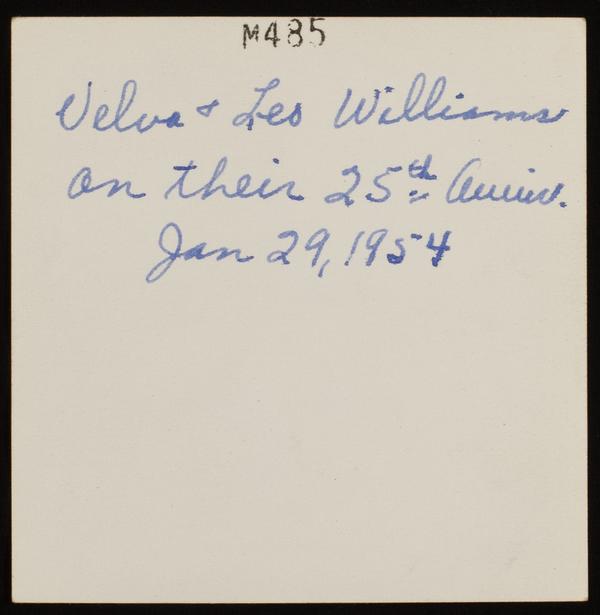 M485
Velva + Leo Williams
on their 25th Anniv.
Jan 29, 1954